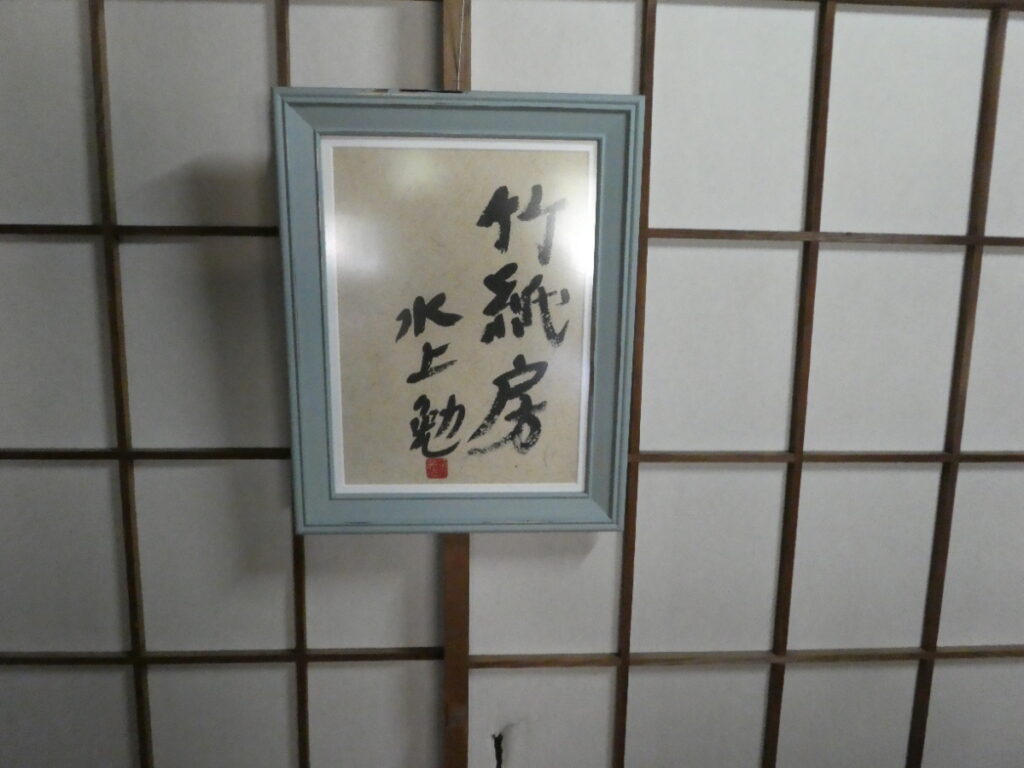 竹紙房
水上勉